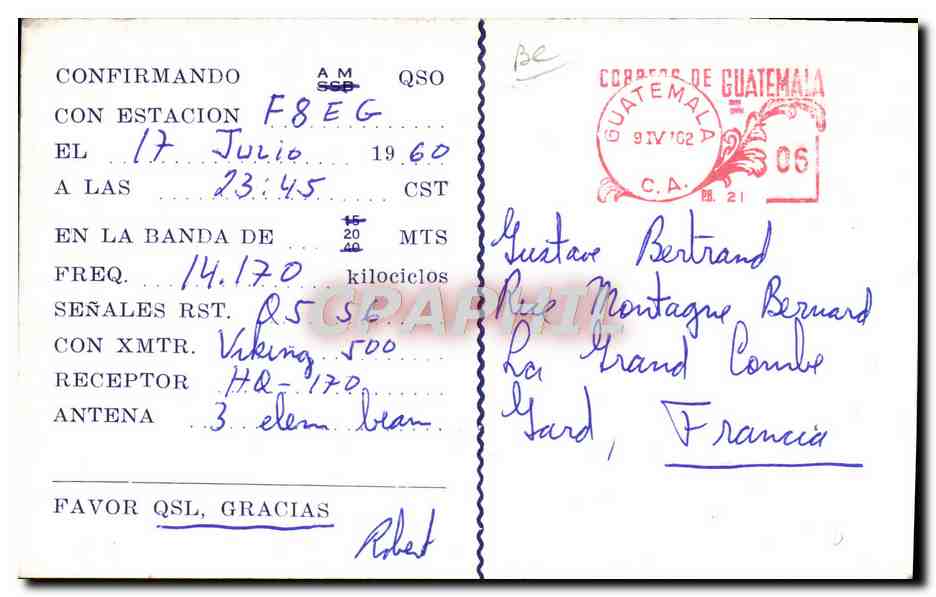 CONFIRMANDO AM SSB QSO
CON ESTACION F8EG
EL 17 Julio 1960
A LAS 23:45 CST
EN LA BANDA DE 15 20 40 MTS
FREQ. 14.170 kilociclos
SEÑALES RST. Q5 S6
CON XMTR. Viking 500
RECEPTOR HQ-170
ANTENA 3 elem beam
FAVOR QSL, GRACIAS
Robert
BC
CORREOS DE GUATEMALA
GUATEMALA
9 IV '62
C.A.
06
P.B. 21
Gustave Bertrand
Rue Montagne Bernard
La Grand Combe
Gard, Francia
CPAPHIL